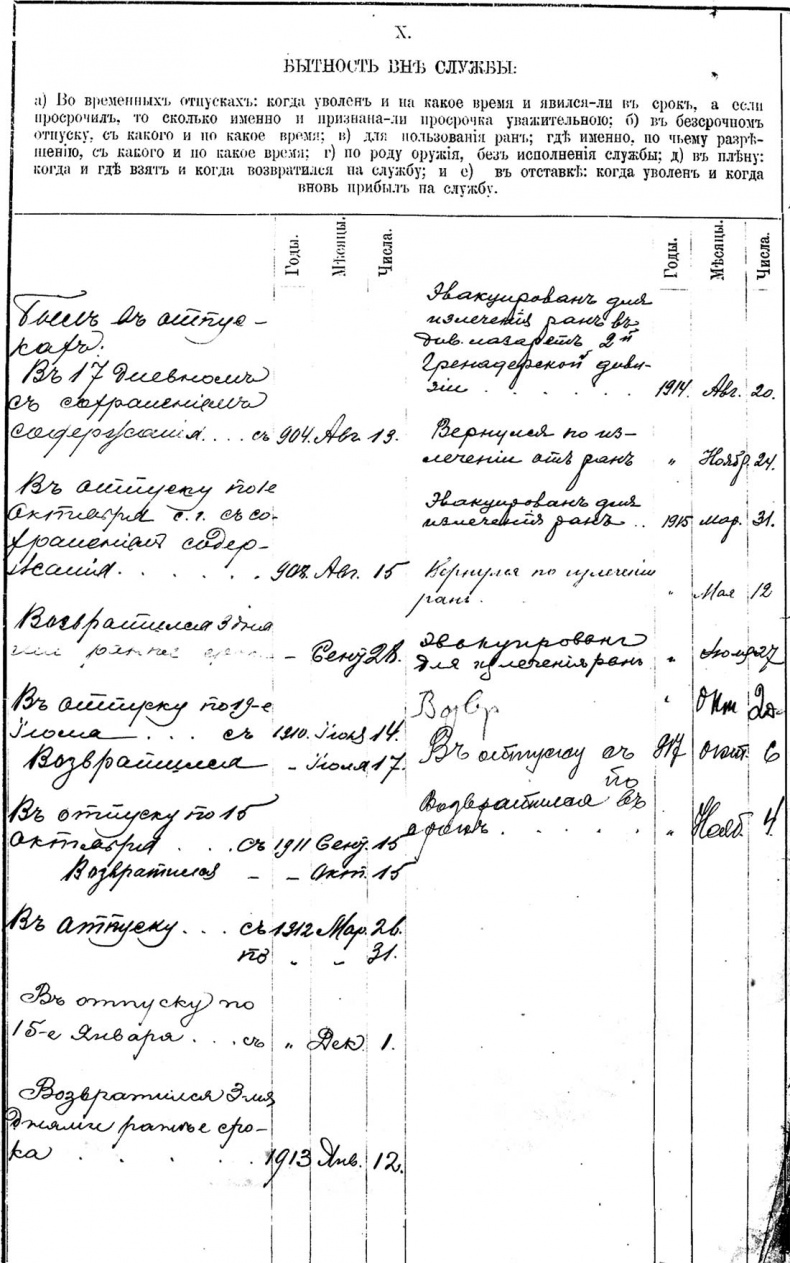 X.
БЫТНОСТЬ ВНѢ СЛУЖБЫ:
а) Во временныхъ отпускахъ: когда уволенъ и на какое время и явился-ли въ срокъ, а если
просрочилъ, то сколько именно и признана-ли просрочка уважительною; б) въ безсрочномъ
отпуску, съ какого и по какое время; в) для пользованія ранъ; гдѣ именно, по чьему разрѣ-
шенію, съ какого и по какое время; г) по роду оружія, безъ исполненія службы; д) въ плѣну:
когда и гдѣ взятъ и когда возвратился на службу; и е) въ отставкѣ: когда уволенъ и когда
вновь прибылъ на службу.
Годы. Мѣсяцы. Числа.
Былъ въ отпус-
кахъ:
Въ 17 дневномъ
съ сохраненіемъ
содержанія.... съ 904. Авг. 13.
Въ отпуску по 1е
Октября с. г. съ со-
храненіемъ содер-
жанія. . . . . . Авг. 15
Возвратился 3 дня
ранѣе - Сент. 28.
Въ отпуску по 19-е
Іюля . . . съ 1910. 14.
Возвратился - Іюля 17.
Въ отпуску по 15
Октября . . . съ 1911 Сент. 15
Возвратился - - Окт. 15
Въ отпуску . . . съ 1912 Мар. 26.
по " " 31.
Въ отпуску по
15-е Января . . . съ " Дек. 1.
Возвратился 3мя
днями ранѣе сро-
ка . . . . . . 1913 Янв. 12.
Годы. Мѣсяцы. Числа.
Эвакуированъ для
излеченія ранъ въ
див. лазаретъ 2й
Гренадерской диви-
зіи . . . . . . 1914. Авг. 20.
Вернулся по из-
леченіи отъ ранъ " Ноябр. 24.
Эвакуированъ для
излеченія ранъ .. 1915 Мар. 31.
Вернулся по излеченіи
ранъ. " Мая 12
Эвакуированъ
для излеченія ранъ " 27
Возвр " Окт
Въ отпуску съ 917 Окт. 6
по
Возвратился въ
срокъ . . . . . " Нояб. 4.